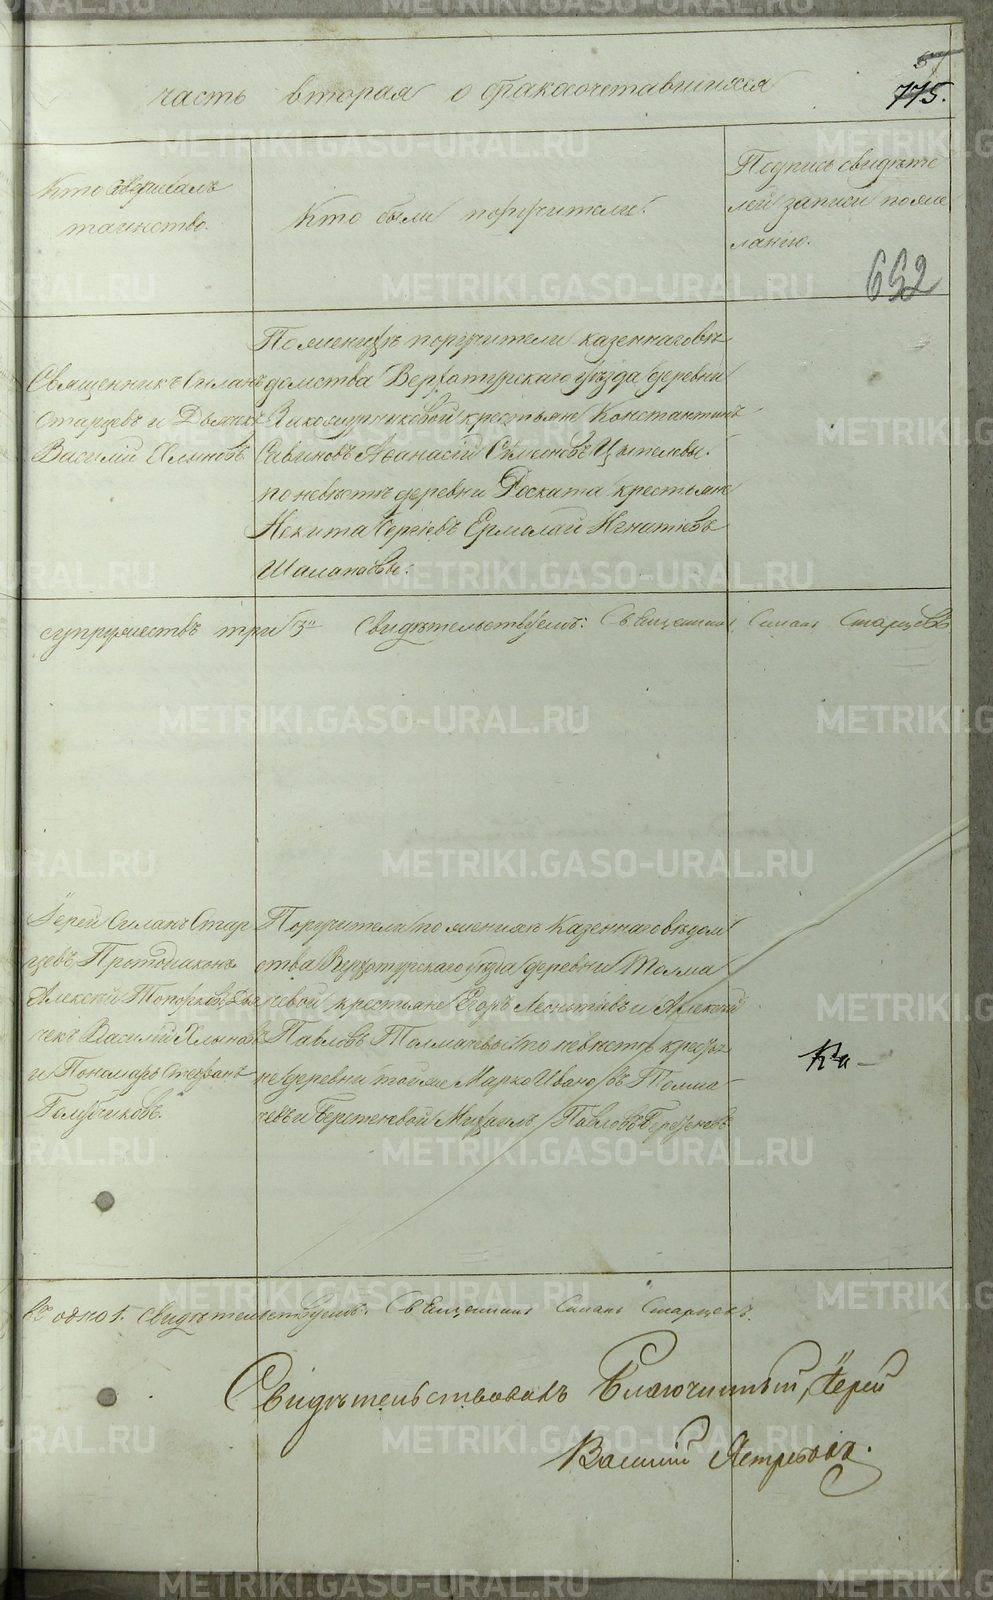 часть вторая о бракосочетавшихся
57
775.
Кто совершалъ
таинство.
Кто были поручители.
Подпись свидѣте
лей записи по же
ланію.
652
Священникъ Силанъ
Старцевъ и Дьячекъ
Василій Хлыновъ
По женихѣ поручители казеннаго вѣ
домства Верхотурскаго уѣзда деревни
крестьяне Константинъ
Савиновъ Афанасій Семеновъ
по невѣстѣ деревни Доската крестьяне
Никита Сергіевъ Ермолай Игнатіевъ
Шалапаевы.
супружествъ три "3" Свидѣтельствуемъ: Священникъ Силанъ Старцевъ
Іерей Силанъ Стар
цевъ Протодіаконъ
Алексѣй Топорковъ Дья
чекъ Василій Хлыновъ
и Пономарь Стефанъ
Голубчиковъ.
Поручители по женихѣ Казеннаго вѣдом
ства Верхотурскаго уѣзда деревни Толма
чевой крестьяне Егоръ Леонтіевъ и Алексѣй
Павловъ Толмачевы по невѣстѣ кресть
не деревни тойже Марко Ивановъ Толма
чевъ и Береневой Михаилъ Павловъ
одно 1. свидѣтельствуемъ: Священникъ Силанъ Старцевъ.
Свидѣтельствовалъ Благочинный, Іерей
Василій Ястребовъ.
METRIKI.GASO-URAL.RU